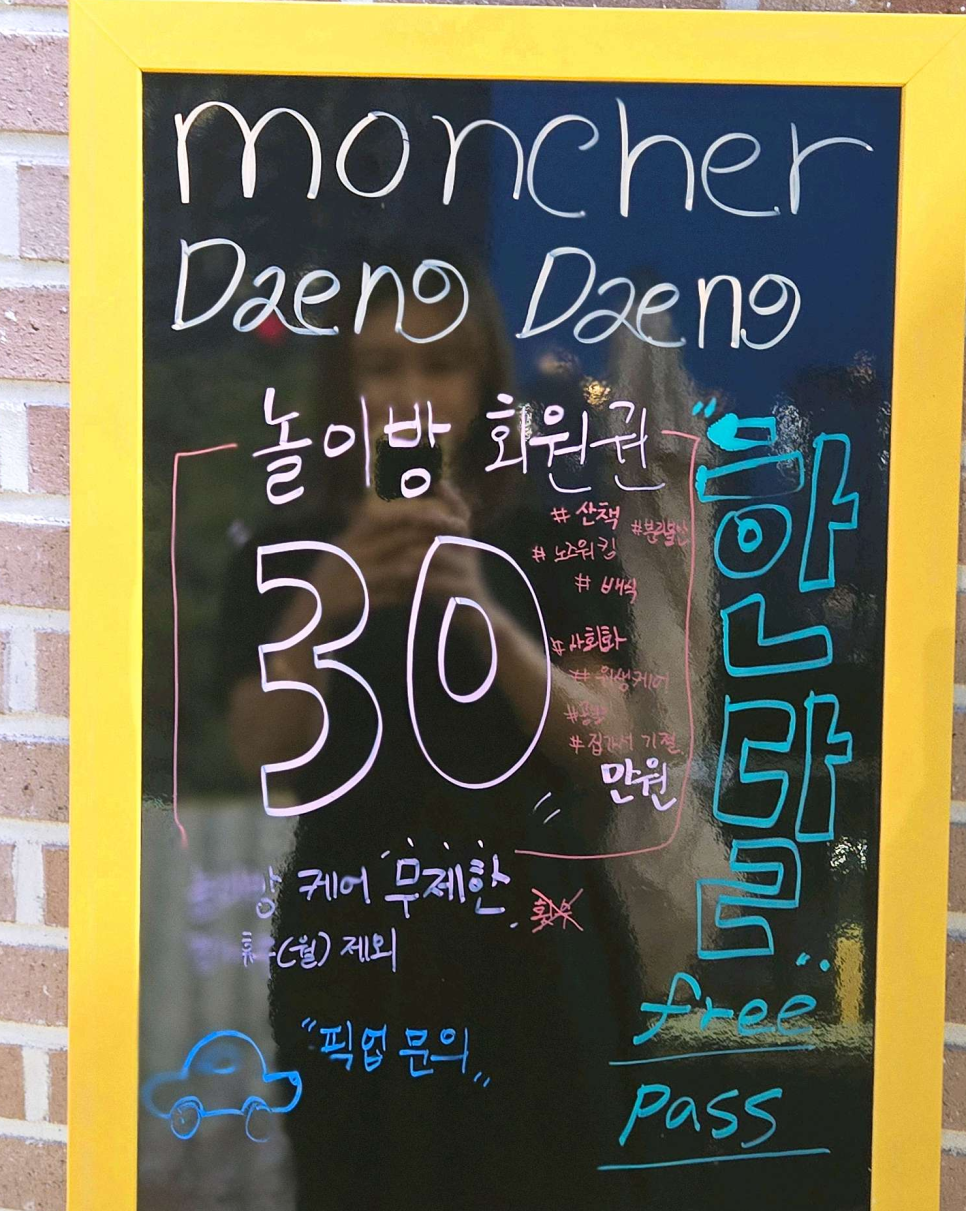 moncher
Daeng Daeng
놀이방 회원권
30
만원
#산책 #분리불안
#노즈워킹
#배식
#사회화
#위생케어
#집가서 기절
"한달
free
pass
케어 무제한
(월) 제외
"픽업 문의"